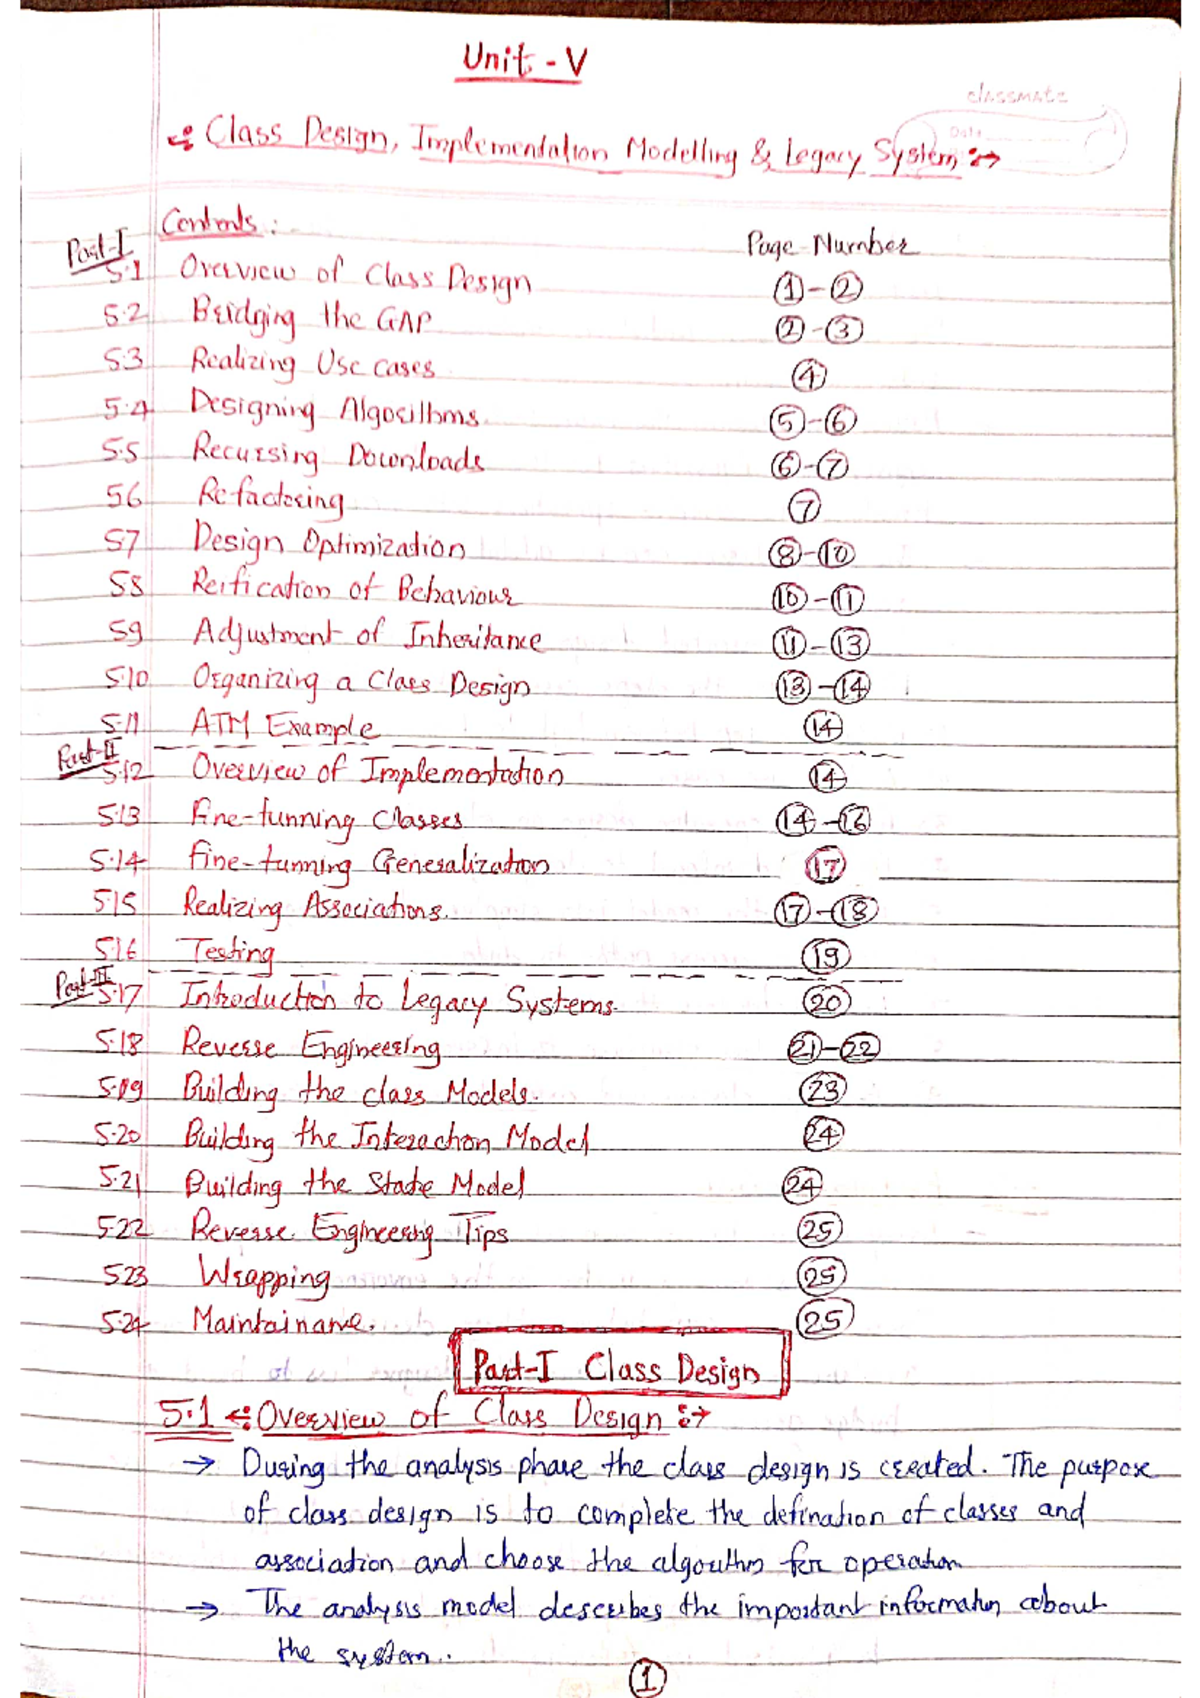 Unit - V
classmate
Date
Class Design, Implementation Modelling & Legacy System
Contents :
Page Number
Part-I
5.1 Overview of Class Design 1 - 2
5.2 Bridging the GAP 2 - 3
5.3 Realizing Use cases 4
5.4 Designing Algorithms. 5 - 6
5.5 Recursing Downloads 6 - 7
5.6 Refactoring 7
5.7 Design Optimization 8 - 10
5.8 Reification of Behaviour 10 - 11
5.9 Adjustment of Inheritance 11 - 13
5.10 Organizing a Class Design 13 - 14
5.11 ATM Example 14
Part-II
5.12 Overview of Implementation 14
5.13 Fine-tunning Classes 14 - 16
5.14 Fine-tunning Generalization 17
5.15 Realizing Associations. 17 - 18
5.16 Testing 19
Part-III
5.17 Introduction to Legacy Systems. 20
5.18 Reverse Engineering 21 - 22
5.19 Building the class Models. 23
5.20 Building the Interaction Model 24
5.21 Building the State Model 24
5.22 Reverse Engineering Tips 25
5.23 Wrapping 25
5.24 Maintainance. 25
Part-I Class Design
5.1 Overview of Class Design
→ During the analysis phase the class design is created. The purpose
of class design is to complete the defination of classes and
association and choose the algorithm for operation
→ The analysis model describes the important information about
the system.
1